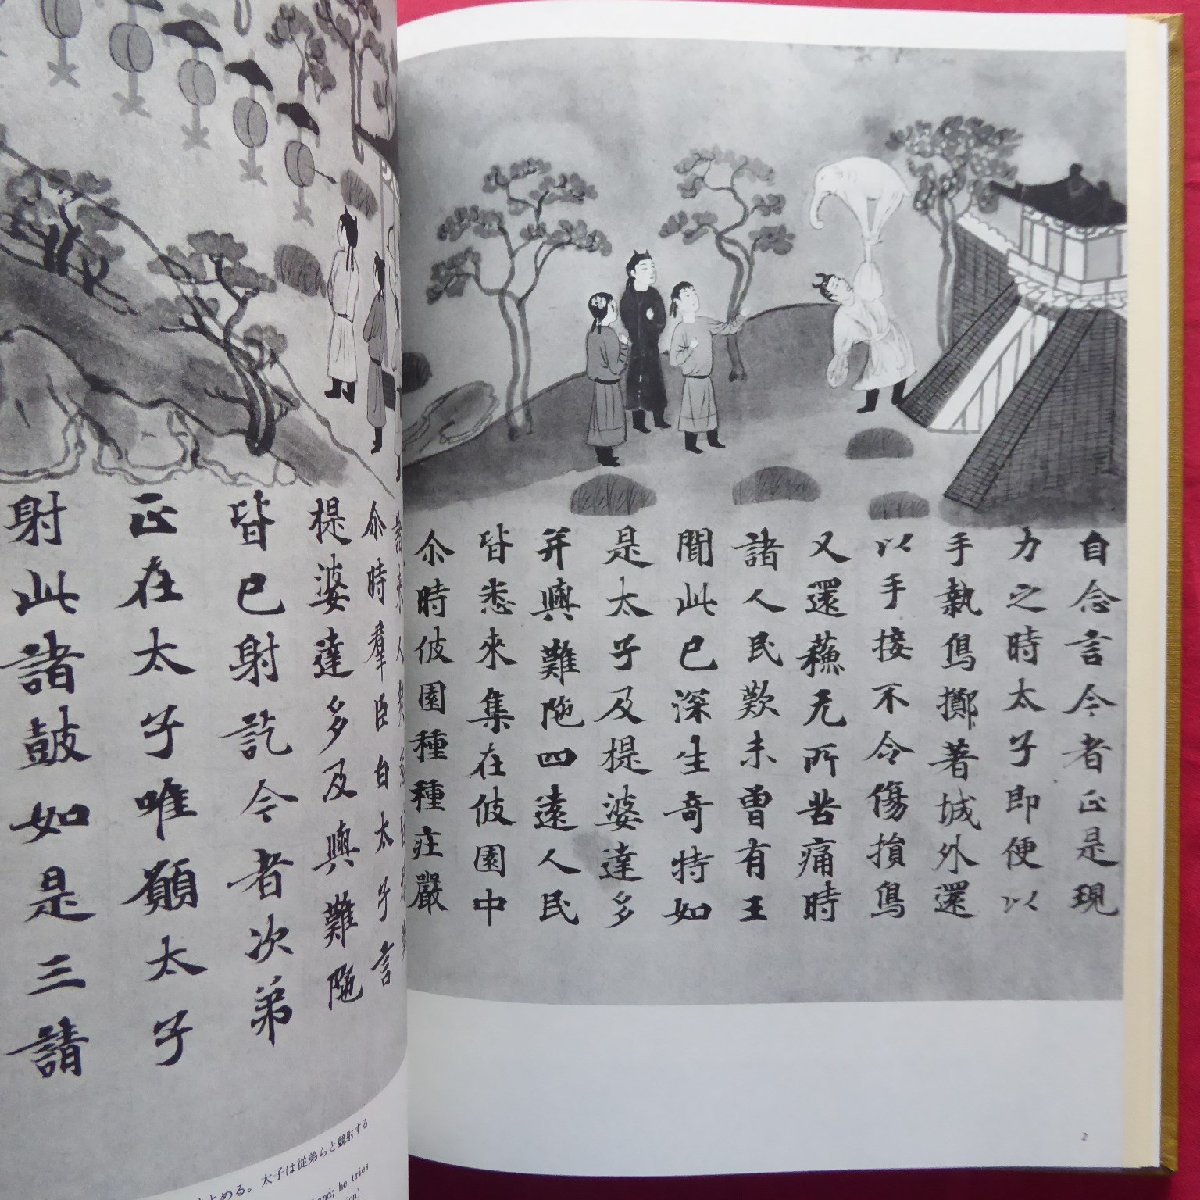 自念言今者正是現
力之時太子即便以
手執象擲著城外還
以手接不令傷損象
又還蘇无所苦痛時
諸人民歎未曾有王
聞此已深生奇特如
是太子及提婆達多
并與難陁四遠人民
皆悉來集在彼園中
尒時彼園種種莊嚴
2
尒時羣臣白太子言
提婆達多及與難陁
皆已射訖今者次第
正在太子唯願太子
射此諸鼓如是三請
とめる。太子は従弟らと競射する
he tries